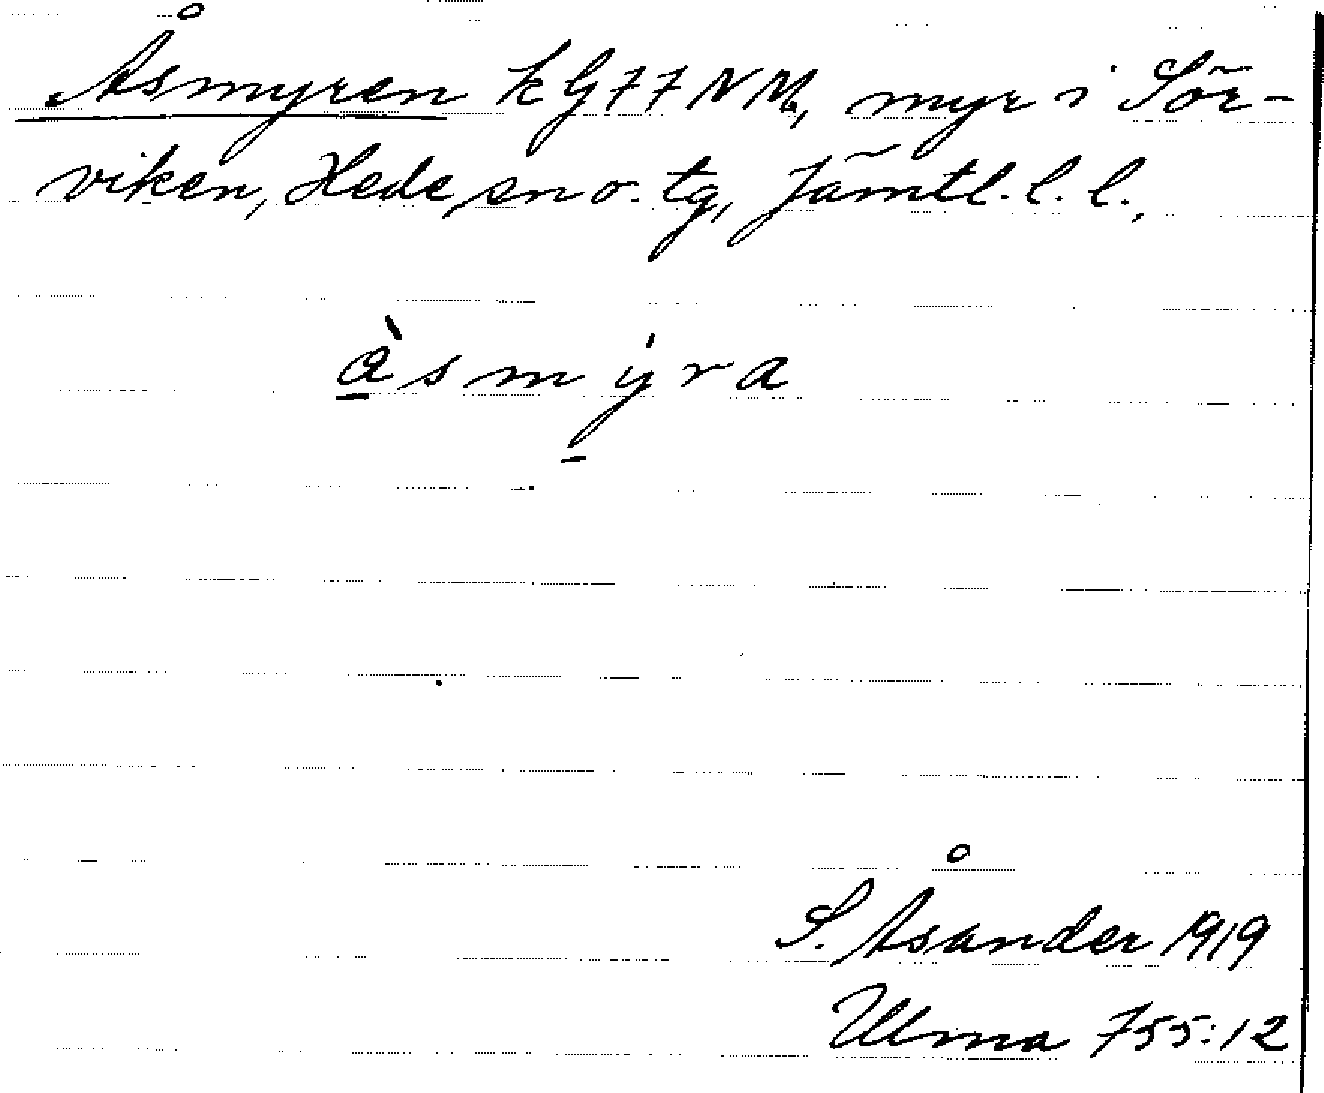 Åsmyren k G77NM, myr i Sör-
viken, Hede sn o. tg, Jämtl. l. l.,
àsmýra
S. Åsander 1919
Ulma 755:12